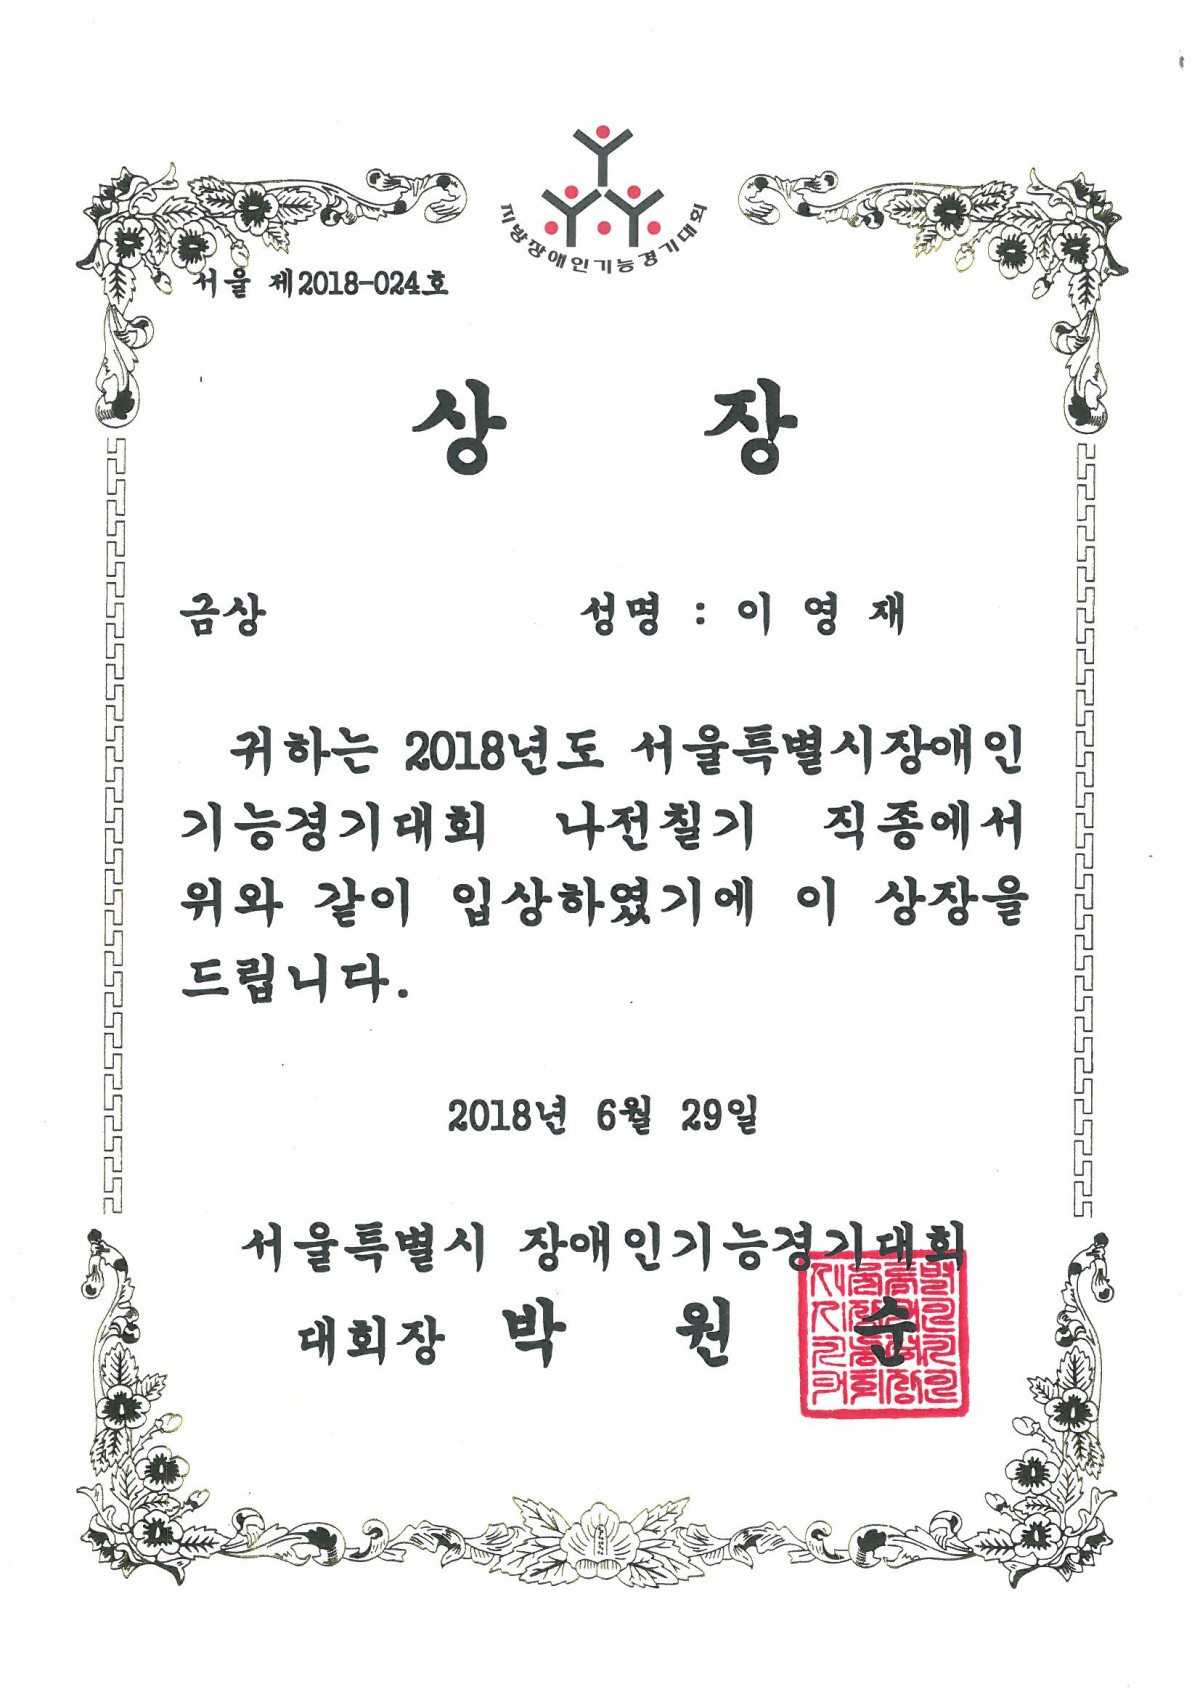 지방장애인기능경기대회
서울 제2018-024호
상 장
금상 성명 : 이 영 재
귀하는 2018년도 서울특별시장애인
기능경기대회 나전칠기 직종에서
위와 같이 입상하였기에 이 상장을
드립니다.
2018년 6월 29일
서울특별시 장애인기능경기대회
대회장 박 원 순